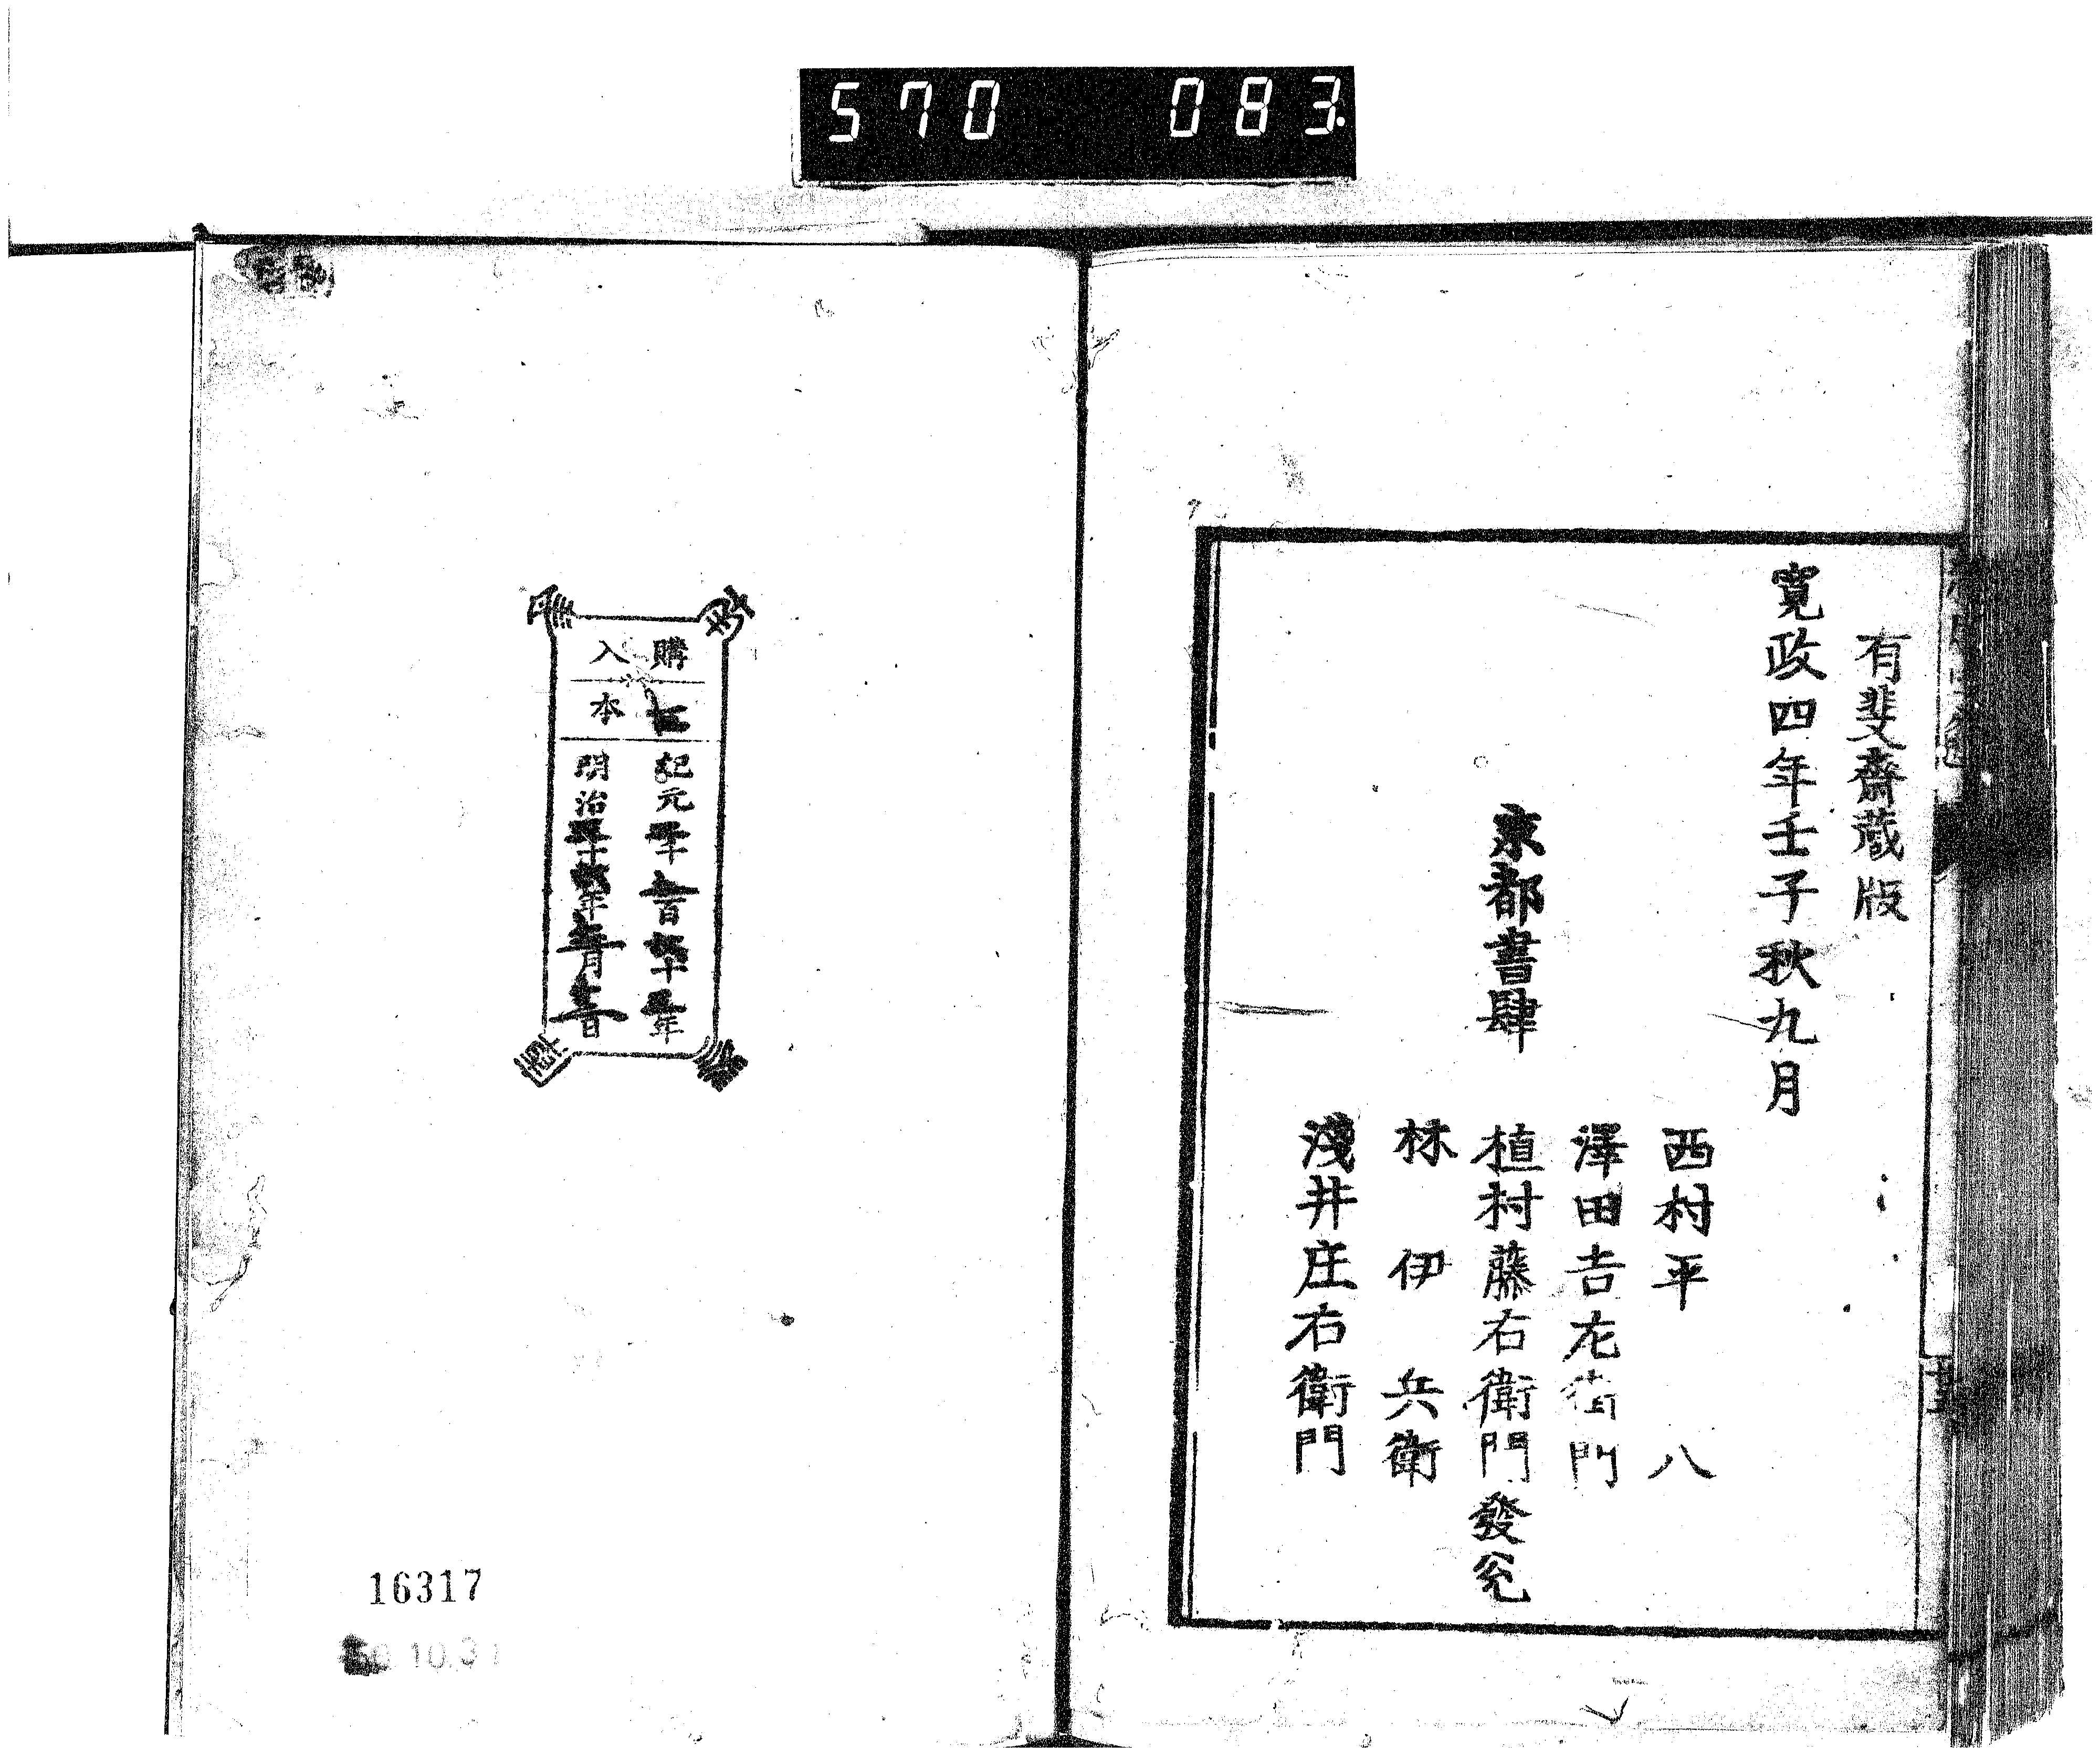 570 083.
有斐齋蔵版
寛政四年壬子秋九月
京都書肆
西村平八
澤田吉左衛門
植村藤右衛門發兌
林伊兵衛
淺井庄右衛門
購入
本
紀元二千 百 十 年
明治 年 月 日
16317
10.31